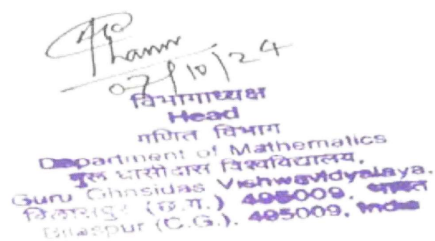 07/10/24
विभागाध्यक्ष
Head
गणित विभाग
Department of Mathematics
गुरू घासीदास विश्वविद्यालय,
Guru Ghasidas Vishwavidyalaya.
बिलासपुर (छ.ग.) 495009, भारत
Bilaspur (C.G.). 495009, India